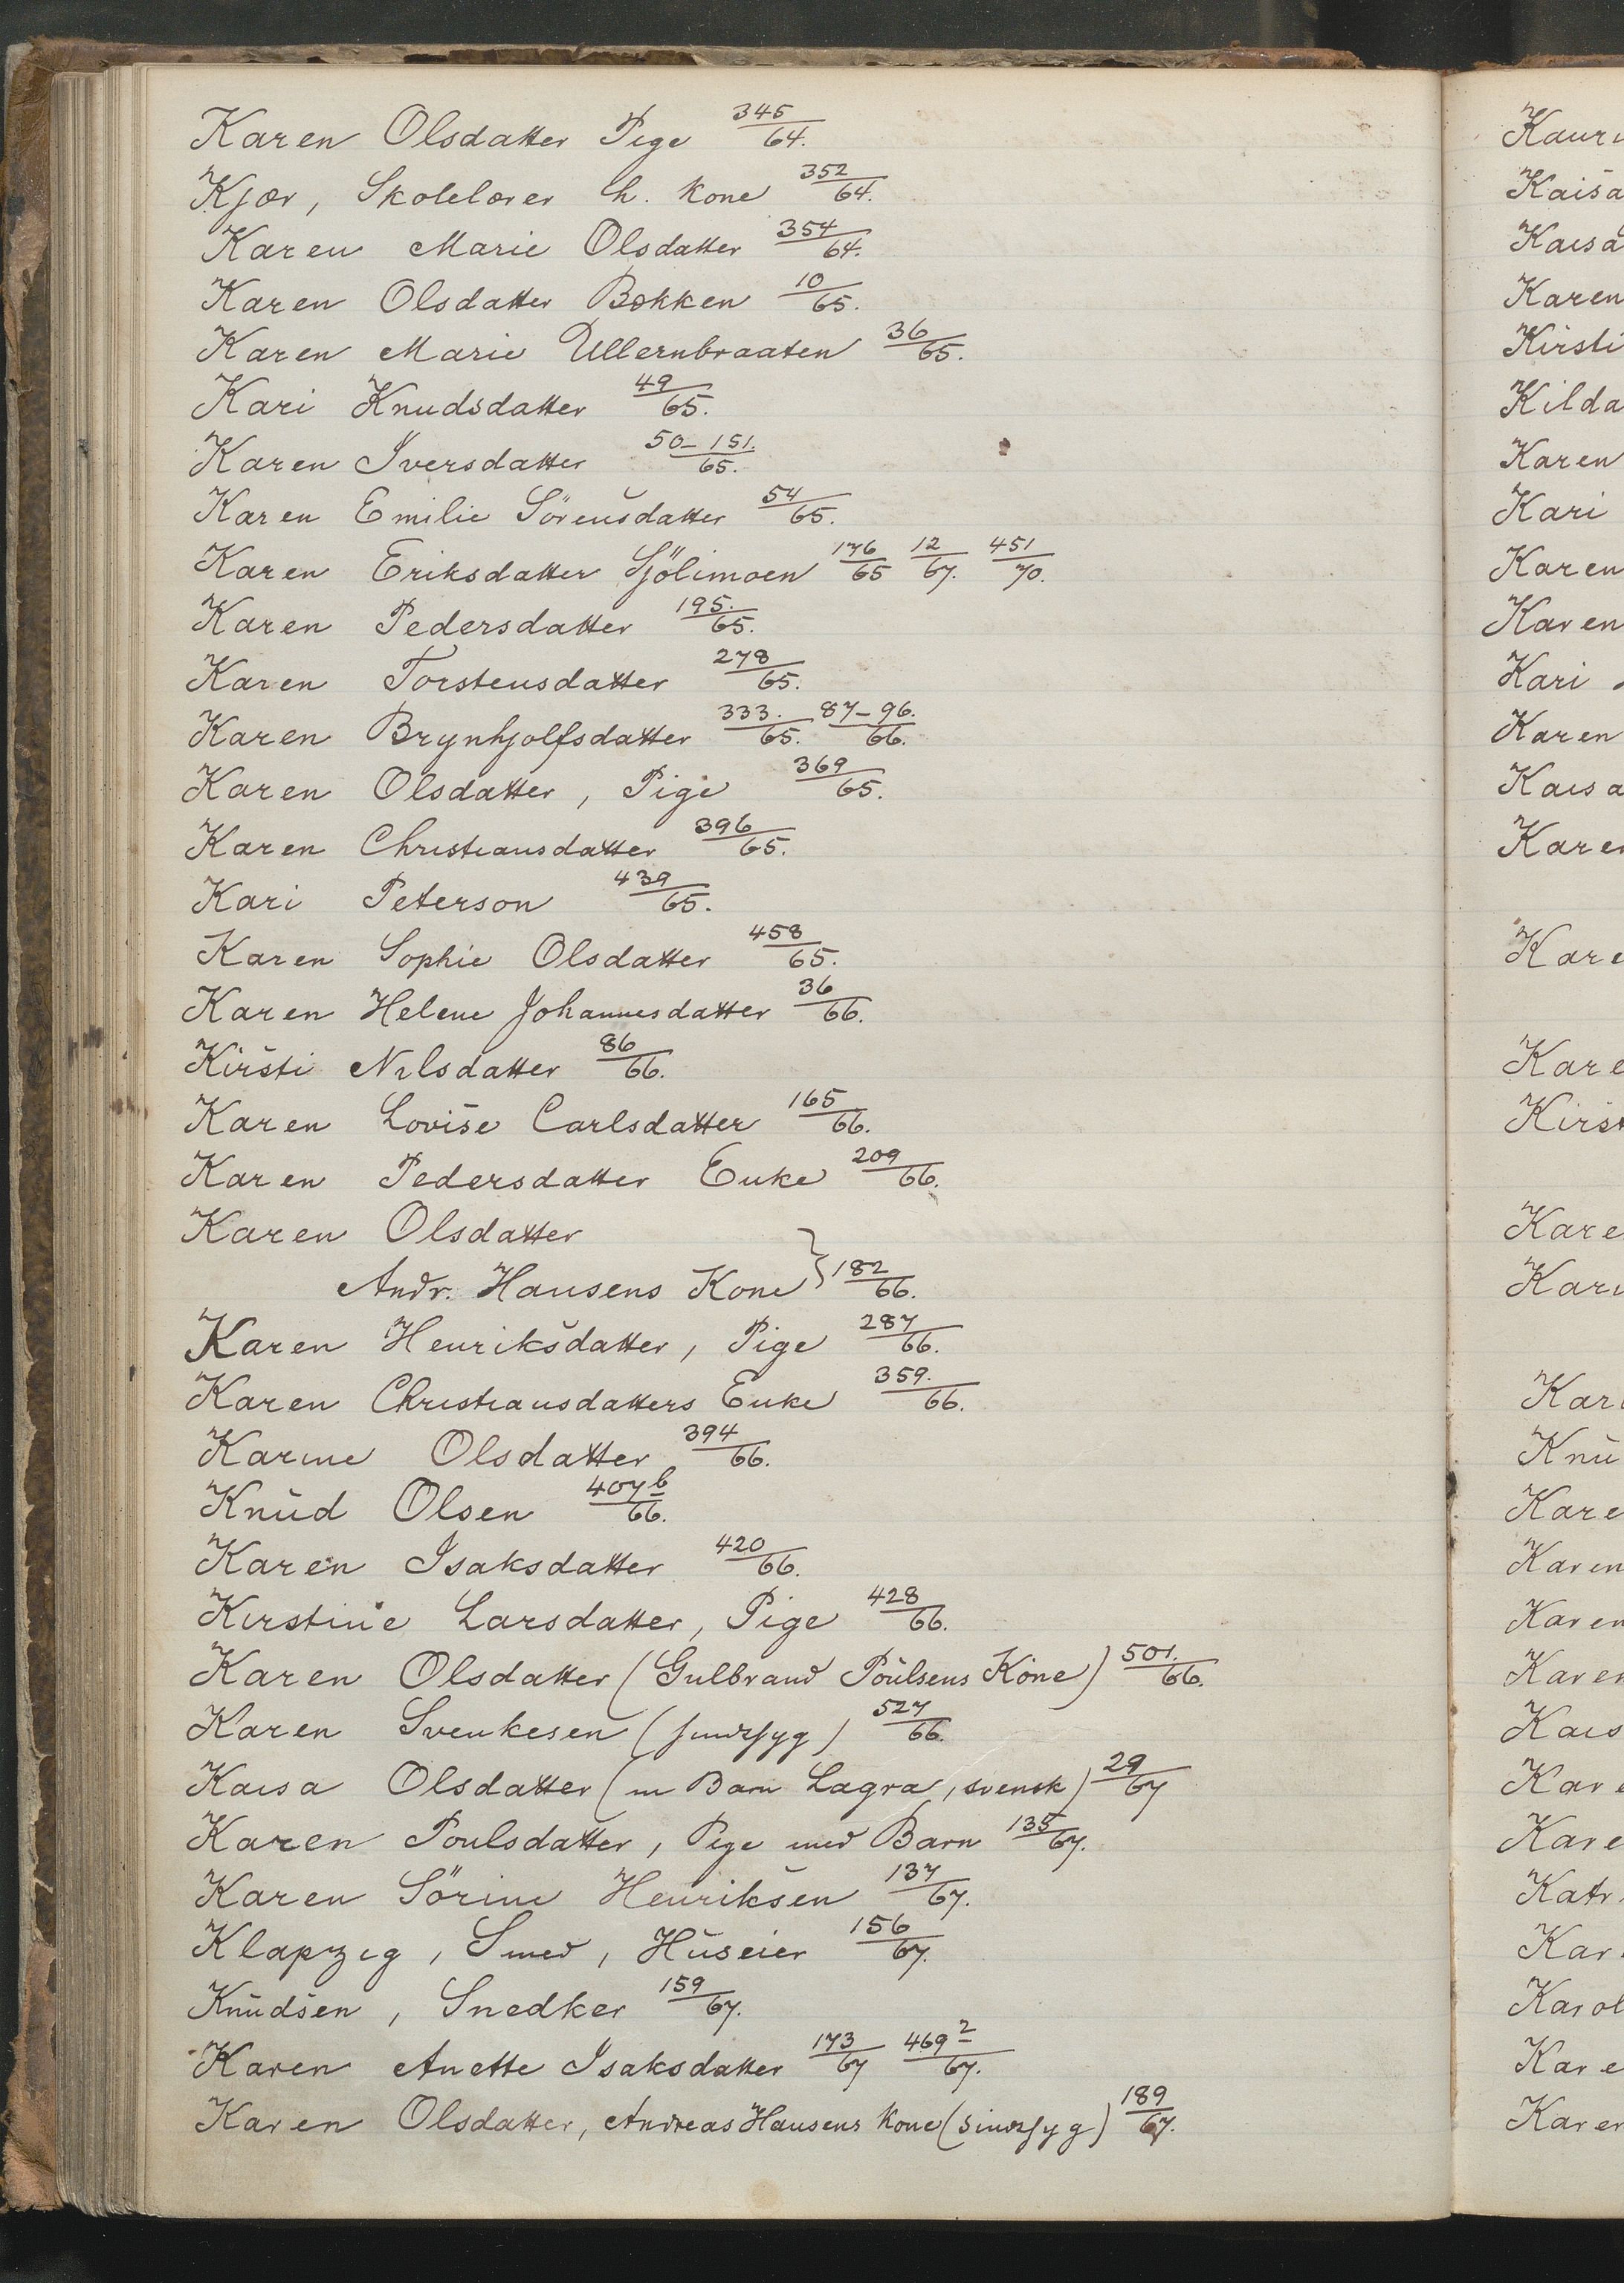 Karen Olsdatter Pige 345/64.
Kjær, Skolelærer h. Kone 352/64.
Karen Marie Olsdatter 354/64.
Karen Olsdatter Bækken 10/65.
Karen Marie Ullernbraaten 36/65.
Kari Knudsdatter 49/65.
Karen Iversdatter 50-151./65.
Karen Emilie Sörensdatter 54/65.
Karen Eriksdatter Sjölimoen 176/65 12/67. 451/70.
Karen Pedersdatter 195./65.
Karen Torstensdatter 278/65.
Karen Brynhjolfsdatter 333./65. 87-96./66.
Karen Olsdatter, Pige 369/65.
Karen Christiansdatter 396/65.
Kari Peterson 439/65.
Karen Sophie Olsdatter 458/65.
Karen Helene Johannesdatter 36/66.
Kirsti Nilsdatter 86/66.
Karen Lovise Carlsdatter 165/66.
Karen Pedersdatter Enke 209/66.
Karen Olsdatter
Andr. Hansens Kone } 182/66.
Karen Henriksdatter, Pige 287/66.
Karen Christiansdatters Enke 359./66.
Karine Olsdatter 394/66.
Knud Olsen 407b/66.
Karen Isaksdatter 420/66.
Kirstine Larsdatter, Pige 428/66.
Karen Olsdatter (Gulbrand Poulsens Kone) 501./66.
Karen Svenkesen (sindssyg) 527/66.
Kaisa Olsdatter (m Barn Lagra, svensk) 29/67
Karen Poulsdatter, Pige med Barn 135/67.
Karen Sörine Henriksen 137/67.
Klapzig, Smed, Huseier 156/67.
Knudsen, Snedker 159/67.
Karen Anette Isaksdatter 173/67 469²/67.
Karen Olsdatter, Andreas Hansens Kone (sindssyg) 189/67.
Kaisa
Kaisa
Karen
Kirsti
Kilda
Karen
Kari
Karen
Karen
Kari
Karen
Kaisa